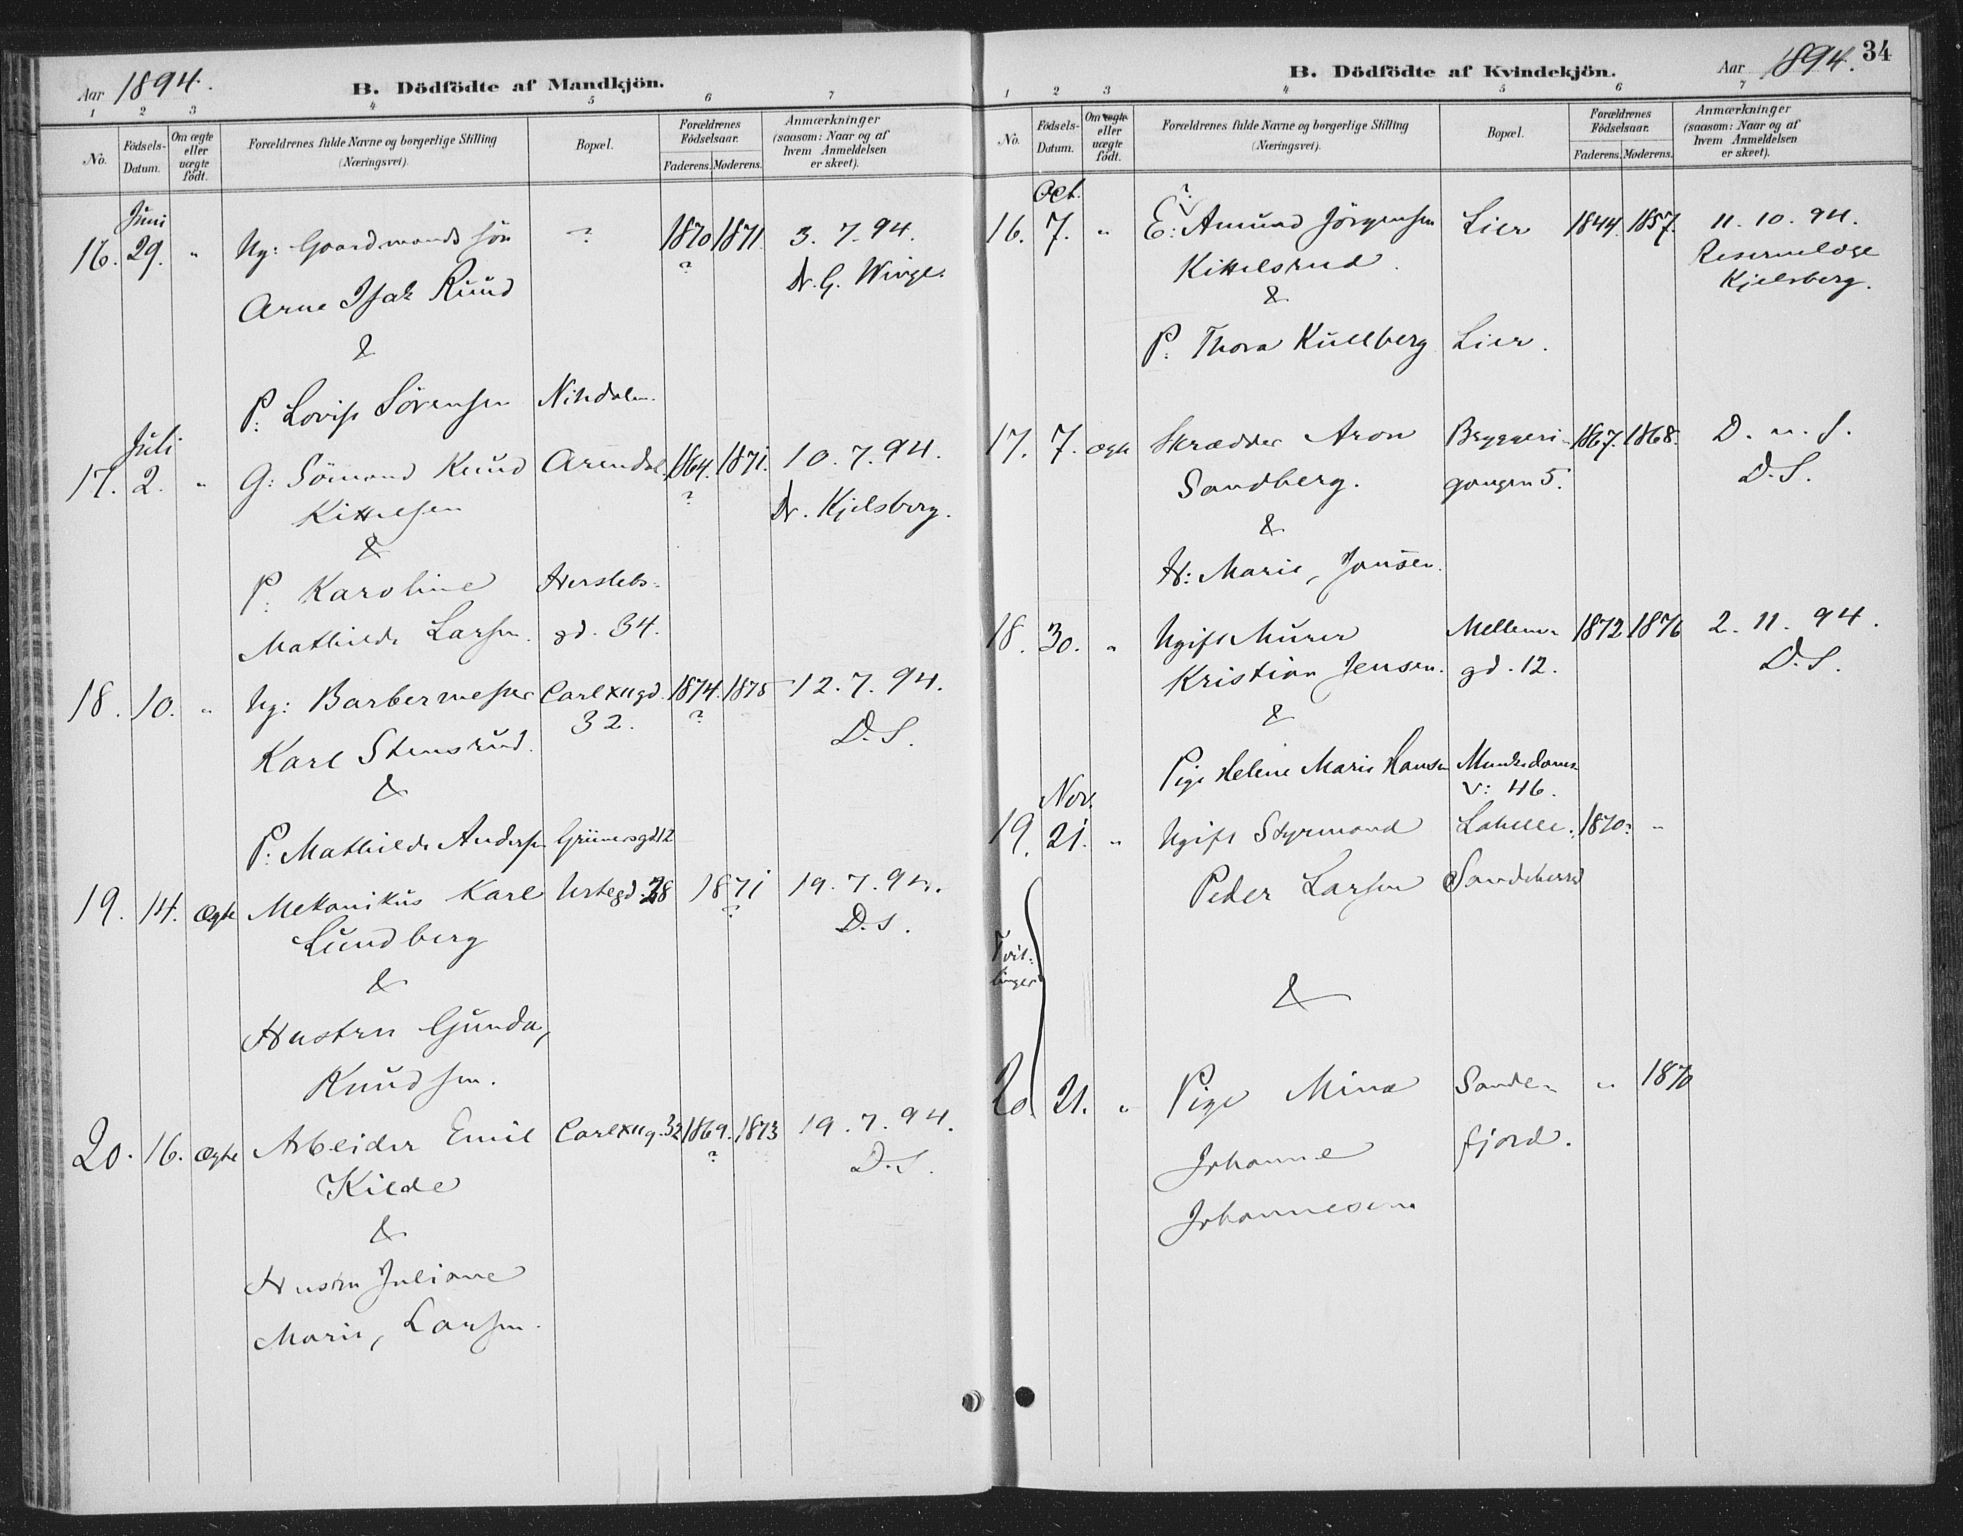 Aar 1894.
B. Dödfödte af Mandkjön.
1 2 3 4 5 6 7
No.
Födsels-
Datum.
Om ægte
eller
uægte
født.
Forældrenes fulde Navne og borgerlige Stilling
(Næringsvei).
Bopæl.
Forældrenes
Födselsaar.
Faderens. Moderens.
Anmærkninger
(saasom: Naar og af
hvem Anmeldelsen
er skeet).
Juni
16. 29. " Ug: Gaardmands søn ? 1870 1871. 3. 7. 94.
? Dr. G. Winge.
Arne Isak Ruud
&
P. Lovise Sørensen Nitedalen.
Juli
17. 2. " G: Sömand Knud Arendal. 1864. 1871. 10. 7. 94.
Kittelsen ? Dr. Kjelsberg.
&
P. Karoline Herslebs-
Mathilde Larsen. gd. 34.
18. 10. " Ug: Barbermester Carl XIIgd. 1874. 1875 12. 7. 94.
32. ? D.S.
Karl Stensrud.
&
P. Mathilde Andersen Grünersgd 12
19. 14. Ægte Mekanikus Karl Urtegd. 28 1871 19. 7. 94.
Lundberg ? D.S.
&
Hustru Gunda,
Knudsen.
20. 16. Ægte Arbeider Emil Carl XIIg. 32 1869. 1873 19. 7. 94.
Kilde ? D.S.
&
Hustru Juliane
Marie, Larsen.
B. Dödfödte af Kvindekjön.
Aar 1894. 34
1 2 3 4 5 6 7
No.
Födsels-
Datum.
Om ægte
eller
uægte
født.
Forældrenes fulde Navne og borgerlige Stilling
(Næringsvei).
Bopæl.
Forældrenes
Födselsaar.
Faderens. Moderens.
Anmærkninger
(saasom: Naar og af
hvem Anmeldelsen
er skeet).
Oct. ?
16. 7. " E: Amund Jörgensen Lier 1844. 1857. 11. 10. 94.
Kittelsrud. Reservelæge
& Kjelsberg.
P. Thora Kullberg Lier.
17. 7. Ægte Skrædder Aron Bryggeri- 1867. 1868. D. u. S.
Sandberg. gangen 5. D.S.
&
H: Marie, Jonsen.
18. 30. " Ugift Murer Mellem- 1872 1876 2. 11. 94.
Kristian Jensen. gd. 12. D.S.
&
Pige Helene Marie Hansen Munkedams
v: 46.
Nov.
19. 21. " Ugift Styrmand 1870? "
Peder Larsen Sandeherred
Tvil-
linger
&
20. 21. " Pige Mina Sande- " 1870
Johanne fjord.
Johannesen